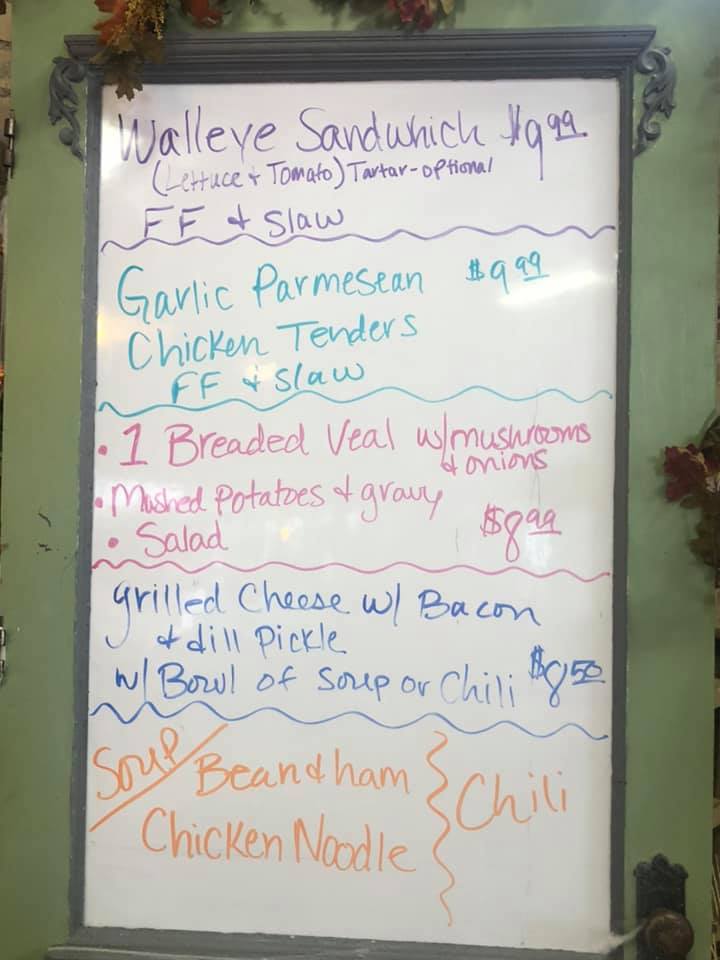 Walleye Sandwhich $9.99
(Lettuce + Tomato) Tartar-optional
FF + Slaw
Garlic Parmesean $9.99
Chicken Tenders
FF + Slaw
• 1 Breaded Veal w/mushrooms
+ onions
• Mashed Potatoes + gravy
• Salad $8.99
grilled Cheese w/ Bacon
+ dill Pickle
w/ Bowl of Soup or Chili $8.50
Soup/ Bean + ham } Chili
Chicken Noodle